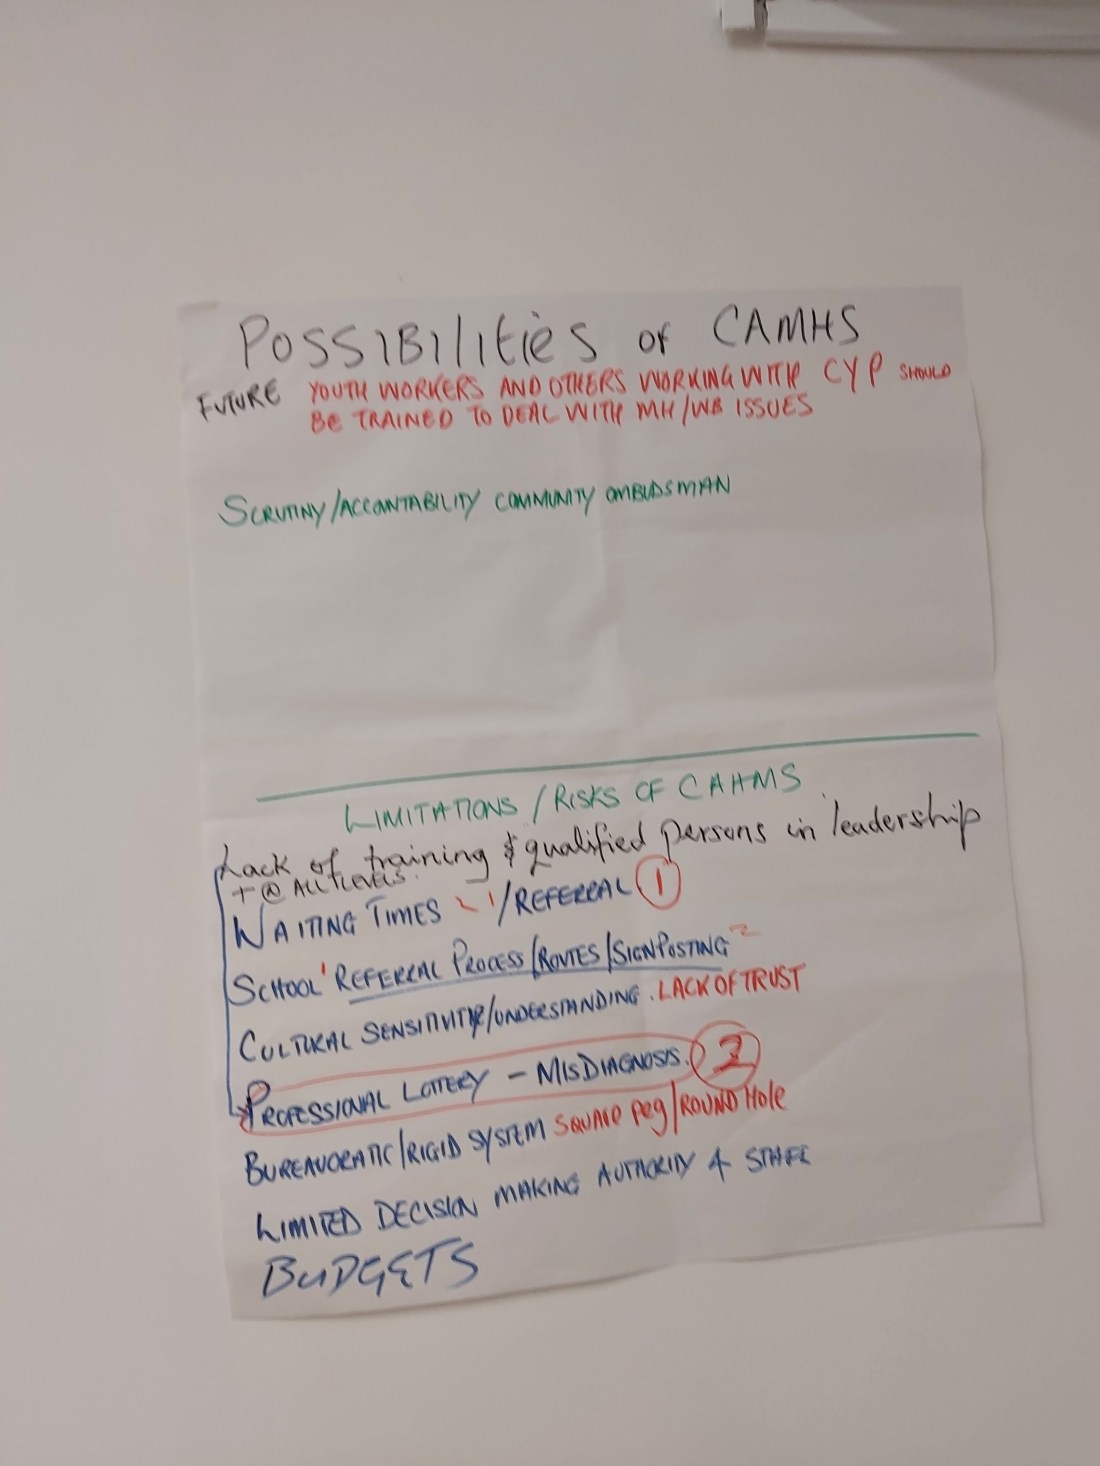 POSSIBILITIES of CAMHS
FUTURE YOUTH WORKERS AND OTHERS WORKING WITH CYP SHOULD
BE TRAINED TO DEAL WITH MH/WB ISSUES
SCRUTINY/ACCOUNTABILITY COMMUNITY OMBUDSMAN
LIMITATIONS/RISKS OF CAHMS
Lack of training & qualified persons in leadership
+ @ ALL LEVELS.
WAITING TIMES /REFERRAL 1
SCHOOL REFERRAL PROCESS/ROUTES/SIGNPOSTING
CULTURAL SENSITIVITY/UNDERSTANDING. LACK OF TRUST
PROFESSIONAL LOTTERY - MISDIAGNOSIS. 2
BUREAUCRATIC/RIGID SYSTEM SQUARE Peg/ROUND Hole
LIMITED DECISION MAKING AUTHORITY 4 STAFF
BUDGETS